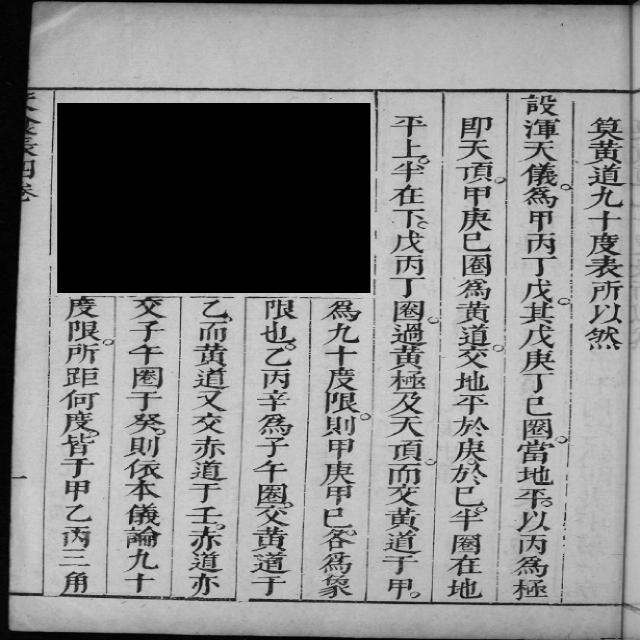 筭黃道九十度表所以然
設渾天儀。爲甲丙丁戊。其戊庚丁己圈。當地平。以丙爲極
卽天頂。甲庚己圈爲黃道。交地平於庚於己。半圈在地
平上。半在下。戊丙丁圈。過黃極及天頂。而交黃道于甲。
爲九十度限。則甲庚甲己。各爲象
限也。乙丙辛爲子午圈。交黃道于
乙。而黃道又交赤道于壬。赤道亦
交子午圈于癸。則依本儀論九十
度限。所距何度。皆于甲乙丙三角
四卷
一